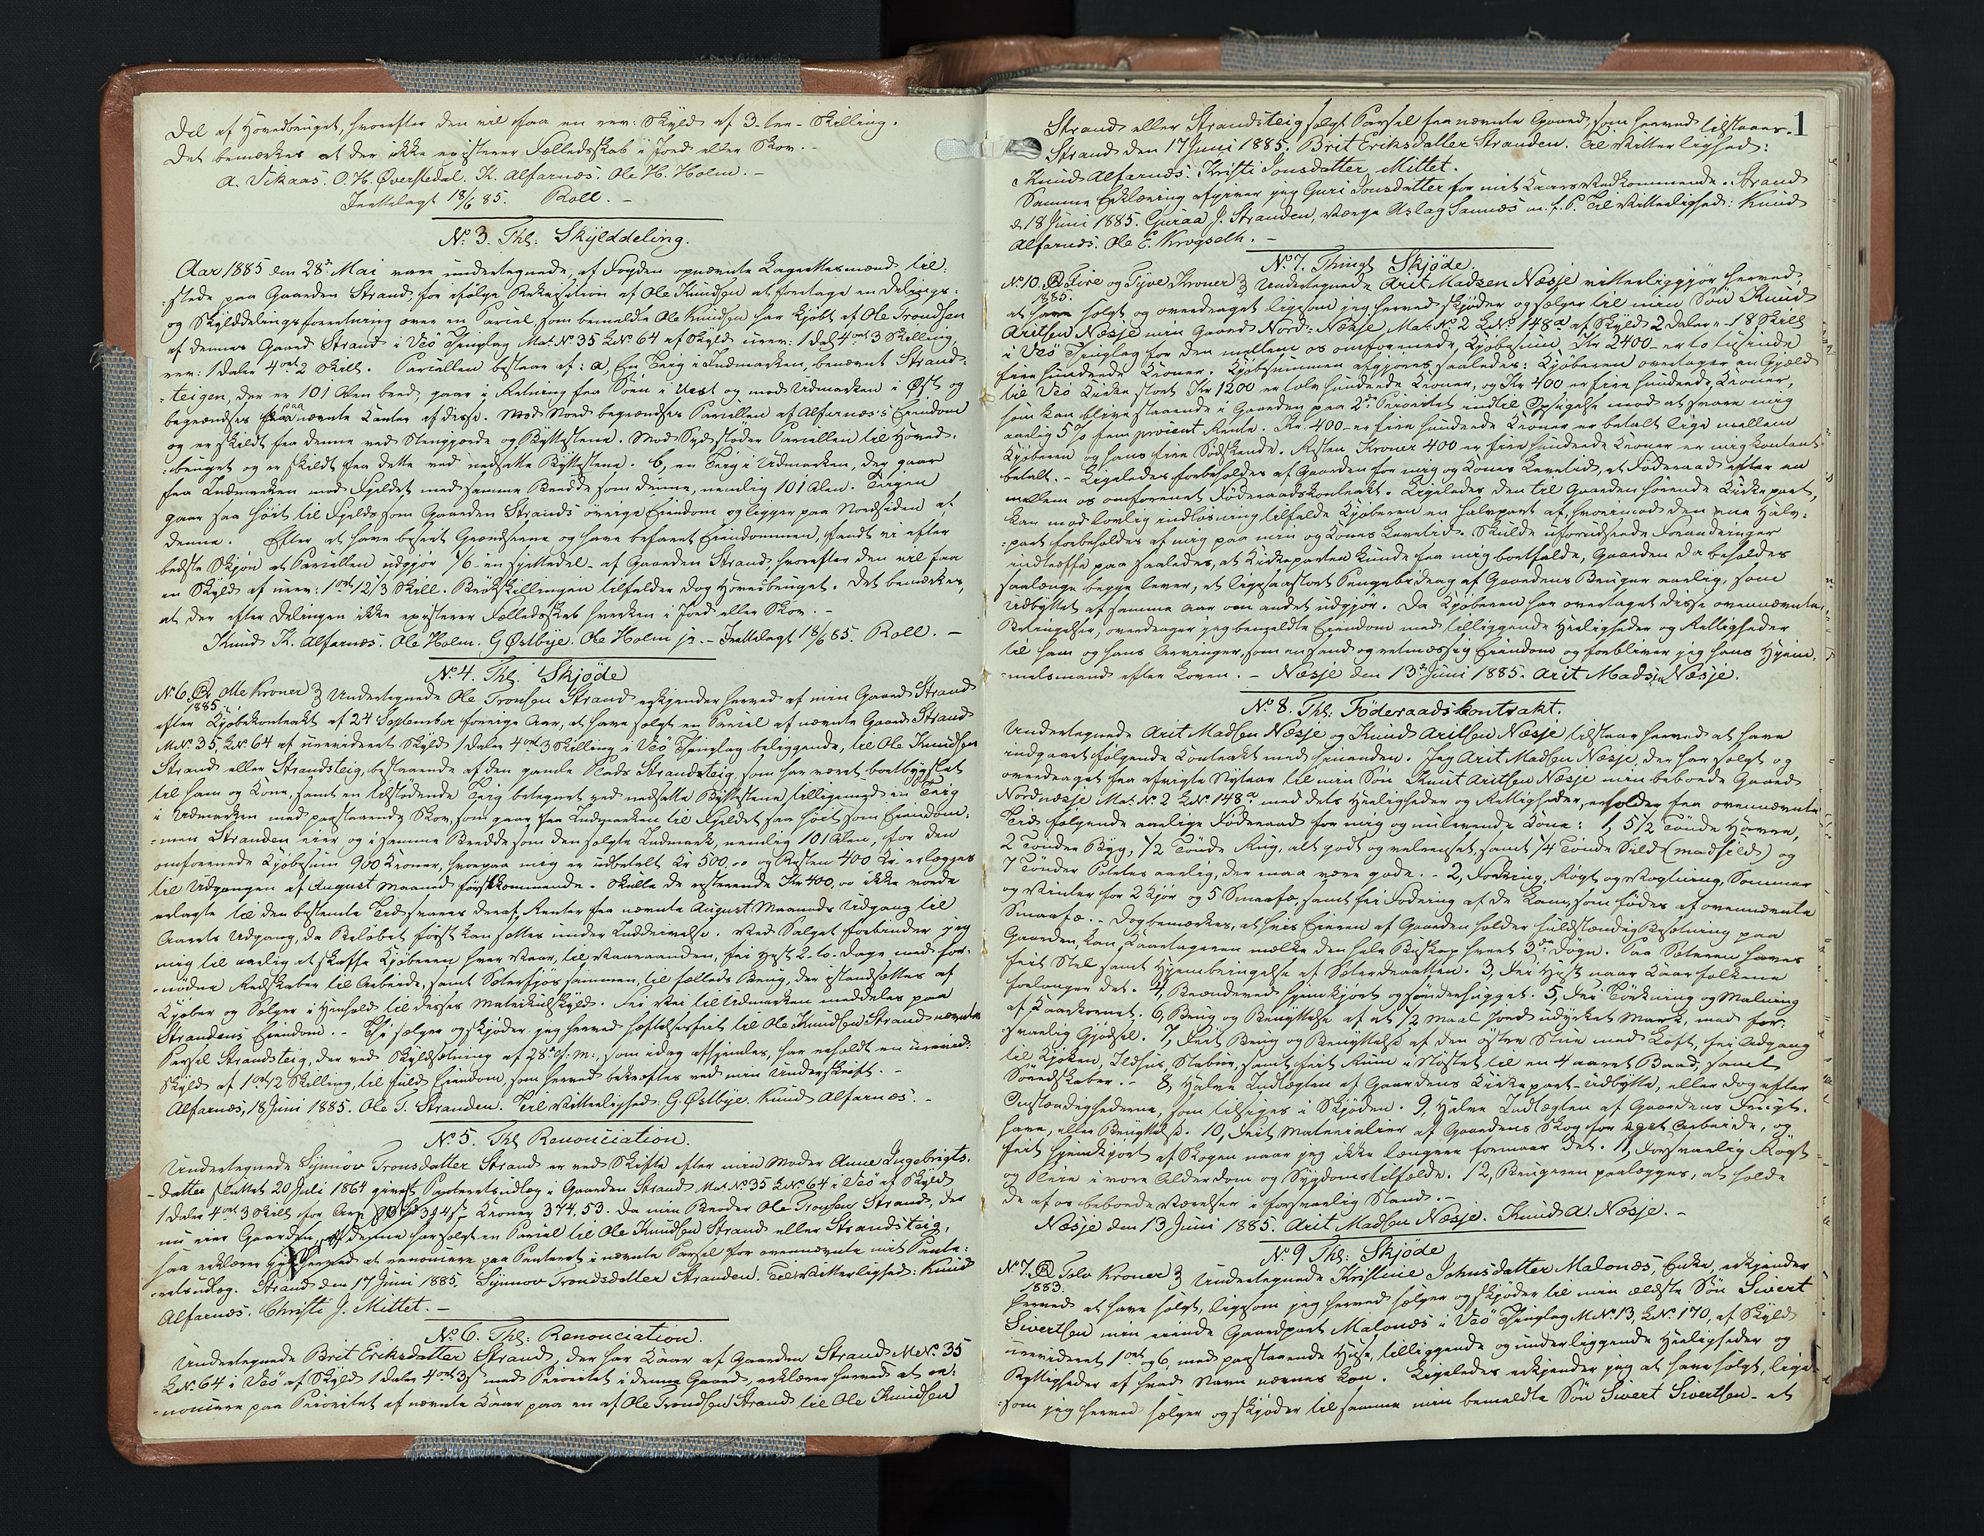 Del af Hovedbruget, hvorefter den vil faa en rev: Skyld af 3 - tre - Skilling.
Det bemærkes at der ikke existerer Fælledsskab i Jord eller Skov. -
A. Vikaas. O. H. Øverstedal. K. Alfarnæs. Ole H. Holm. -
Fremlagt 18/6 85. Roll. -
No. 3. Thl: Skylddeling.
Aar 1885 den 28de Mai vare undertegnede, af Fogden opnævnte Lagrettesmænd til-
stede paa Gaarden Strand, for ifølge Rekvisition af Ole Knudsen at foretage en Delings-
og Skylddelingsforretning over en Parsel, som bemeldte Ole Knudsen har kjøbt af Ole Trondsen
af dennes Gaard Strand i Veø Thinglag Mat. No. 35 L No. 64 af Skyld urev: 1 Dal. 4 ort 3 Skilling,
rev: 1 Daler 4 ort 2 Skill. Parsellen bestaar af: a, En Teig i Indmarken, benævnt Strand-
-teigen, der er 101 Alen bred, gaar i Retning fra Søen i Vest og mod Udmarken i Øst og
begrændses paa nævnte Kanter af disse. Mod Nord begrændses Parsellen af Alfarnæs's Eiendom
og er skildt fra denne ved Stengjærde og Byttestene. Mod Syd støder Parsellen til Hoved-
-bruget og er skildt fra dette ved nedsatte Byttestene. b, en Teig i Udmarken, der gaar
fra Indmarken mod Fjeldet med samme Bredde som denne, nemlig 101 Alen. Teigen
gaar saa høit til Fjelds som Gaarden Strands øvrige Eiendom og ligger paa Nordsiden af
denne. Efter at have beseet Grændserne og have befaret Eiendommen, fandt vi efter
bedste Skjøn at Parsellen udgjør 1/6 - en sjettedel - af Gaarden Strand, hvorefter den vil faa
en Skyld af urev: 1 ort 12 1/3 Skill. Brøkskillingen tilfalder dog Hovedbruget. Det bemærkes,
at der efter Delingen ikke existerer Fælledsskab hverken i Jord eller Skov. -
Knud K. Alfarnæs. Ole Holm. G Østbye. Ole Holm jr. - Fremlagt 18/6 85. Roll. -
No. 4. Thl. Skjøde
No 6. 1885 Otte Kroner } Undertegnede Ole Tronsen Strand erkjender herved af min Gaard Strand
efter Kjøbekontrakt af 24 September forrige Aar, at have solgt en Parsel af nævnte Gaard Strand
M No. 35, L No. 64 af urevideret Skyld 1 Daler 4 ort 3 Skilling i Veø Thinglag beliggende, til Ole Knudsen
Strand eller Strandsteig, bestaaende af den gamle Plads Strandsteig, som har været bortbygslet
til ham og Kone, samt en tilstødende Teig betegnet ved nedsatte Byttestene, tilligemed en Teig
i Udmarken med paastaaende Skov, som gaar fra Indmarken til Fjeldet saa høit som Eiendom-
-men Stranden eier og i samme Bredde som den solgte Indmark, nemlig 101 Alen, for den
omforenede Kjøbesum 900 Kroner, hvorpaa mig er udbetalt Kr 500,00 og Resten 400 Kr. erlægges
til Udgangen af August Maaned førstkommende. Skulle de resterende Kr 400,00 ikke vorde
erlagte til den bestemte Tid svares deraf Renter fra nævnte August Maaneds Udgang til
Aarets Udgang, da Beløbet først kan sættes under Inddrivelse. Ved Salget forbinder jeg
mig til aarlig at skaffe Kjøberen hver Vaar, til Vaaraanden, fri Hest 2 - to - Dage med for-
-nødne Redskaber til Arbeide, samt Sæterfjøs sammen, til fælleds Brug, der istandsættes af
Kjøber og Sælger i Henhold til deres Matrikulskyld. Fri Vei til Udmarken meddeles paa
Strandens Eiendom. - Thi sælger og skjøder jeg herved hæftelsesfrit til Ole Knudsen Strand nævnte
Parsel Strandsteig, der ved Skyldsætning af 28de f: m:, som idag afhjemles, har erholdt en urevid:
Skyld af 1 ort 12 Skilling, til fuld Eiendom, som herved bekræftes ved min Underskrift. -
Alfarnæs, 18 Juni 1885. Ole T. Stranden. Til Vitterlighed: G. Østbye. Knud Alfarnæs. -
No. 5. Thl Renonciation.
Undertegnede Synnøv Tronsdatter Strand er ved Skifte efter min Moder Anne Ingebrigts-
-datter sluttet 20 Juli 1864 givet Panteretsudlæg i Gaarden Strand Mat. No 35 L No. 64 i Veø af Skyld
1 Daler 4 ort 3 Skill for Arv Kroner 374,53. Da min Broder Ole Tronsen Strand, der
nu eier Gaarden, af denne har solgt en Parsel til Ole Knudsen Strand eller Strandsteig,
saa erklærer jeg herved at renoncere paa Panteret i nævnte Parsel for ovennævnte mit Pante-
-retsudlæg. Strand den 17 Juni 1885. Synnøv Trondsdatter Stranden. Til Vitterlighed: Knud
Alfarnæs. Christi J. Mittet. -
No. 6. Thl: Renonciation.
Undertegnede Brit Eriksdatter Strand, der har Kaar af Gaarden Strand M No. 35
L No. 64 i Veø af Skyld 1 Daler 4 ort 3 s med Prioritet i denne Gaard, erklærer herved at re-
-noncere paa Prioritet af nævnte Kaar paa en af Ole Trondsen Strand til Ole Knudsen
1
Strand eller Strandsteig solgt Parsel fra nævnte Gaard, som herved tilstaaes.
Strand den 17 Juni 1885. Brit Eriksdatter Stranden. Til Vitterlighed:
Knud Alfarnæs. Kristi Jonsdatter Mittet.
Samme Erklæring afgiver jeg Guri Jonsdatter for mit Kaars Vedkommende. Strand
d. 18 Juni 1885. Guraa J. Stranden, Værge Aslag Sannæs m. f. P. Til Vitterlighed: Knud
Alfarnæs. Ole E. Krogseth. -
No. 7. Thingl Skjøde.
No 10. 1885. Fire og Tyve Kroner } Undertegnede Arit Madsen Næsje vitterliggjør herved,
at have solgt og overdraget ligesom jeg herved skjøder og sælger til min Søn Knud
Aritsen Næsje min Gaard Nord-Næsje Mat. No 2 L No. 148a af Skyld 2 Daler " 18 Skill
i Veø Thinglag for den mellem os omforenede Kjøbesum Kr 2400 - er to tusinde
fire hundrede Kroner. Kjøbesummen afgjøres saaledes: Kjøberen overtager en Gjæld
til Veø Kirke stort Kr 1200 er tolv hundrede Kroner, og Kr 400 er fire hundrede Kroner,
som kan blive staaende i Gaarden paa 2den Prioritet indtil Opsigelse mod at svare mig
aarlig 5 % fem procent Rente. Kr. 400 - er fire hundrede Kroner er betalt lige mellem
Kjøberen og hans fire Sødskende. Resten Kroner 400 er fire hundrede Kroner er mig kontant
betalt. - Ligeledes forbeholdes af Gaarden for mig og Kones Levetid, et Føderaad efter en
mellem os omforenet Føderaadskontrakt. Ligeledes den til Gaarden hørende Kirkepart,
kan mod lovlig indløsning tilfalde Kjøberen en Halvpart af, hvorimod den ene Halv-
-part forbeholdes af mig paa min og Kones Levetid. Skulde uforudseede Forandringer
indtræffe paa saaledes, at Kirkeparten kunde fra mig bortfalde, Gaarden da beholdes
saalænge begge lever, et ligesaastort Pengebidrag af Gaardens Bruger aarlig, som
Udbyttet af samme Aar om andet udgjør. Da Kjøberen har overtaget disse ovennævnte
Betingelser, overdrager jeg bemeldte Eiendom med tilliggende Herligheder og Rettigheder
til ham og hans Arvinger, som en sand og retmæssig Eiendom og forbliver jeg hans Hjem-
-melsmand efter Loven. - Næsje den 13de Juni 1885. Arit Madsen Næsje.
No. 8. Thl. Føderaadskontrakt.
Undertegnede Arit Madsen Næsje og Knud Aritsen Næsje tilstaar herved at have
indgaaet følgende Kontrakt med hinanden. Jeg Arit Madsen Næsje, der har solgt og
overdraget fra afvigte Nytaar til min Søn Knut Aritsen Næsje min beboede Gaard
Nordnæsje Mat. No. 2 L No. 148a med dets Herligheder og Rettigheder, erholder fra ovennævnte
Tid følgende aarlige Føderaad for mig og nulevende Kone: 1, 5 1/2 Tønde Havre,
2 Tønder Byg, 1/2 Tønde Rug, alt godt og velrenset, samt 1/4 Tønde Sild (madsild) og
7 Tønder Poteter aarlig, der maa være gode. - 2, Fodring, Røgt og Vogtning, Sommer
og Vinter for 2 Kjør og 5 Smaafæ, samt fri Fodering af de Lam, som fødes af ovennævnte
Smaafæ. - Dog bemærkes, at hvis Eieren af Gaarden holder fuldstændig Besætning paa
Gaarden, kan Kaartageren mælke den hele Biskop hvert 3die Døgn. Paa Sæteren haves
frit Stel samt Hjembringelse af Sæterdraatten. 3, Fri Hest naar Kaarfolkene
forlanger det. 4, Brændeved hjemkjørt og sønderhugget. 5, Fri Tørkning og Maling
af Kaarkornet. 6, Brug og Benyttelse af et 1/2 Maal Jord udyrket Mark, med for-
svarlig Gjødsel. 7, Frit Brug og Benyttelse af den østre Stue med Loft, fri Adgang
til Kjøken, Ildhus, Stabur, samt frit Rum i Nøstet til en 4 aaret Baad, samt
Søredskaber. - 8, Halve Indtægten af Gaardens Kirkepart-udbytte, eller dog efter
Omstændighederne, som tilsiges i Skjøden. 9, Halve Indtægten af Gaardens Frugt-
have, eller Benyttelse. 10, Frit Materialier af Gaardens Skog for eget Arbeide, og
frit hjemkjørt af Skogen naar jeg ikke længere formaar det. 11, Forsvarlig Røgt
og Pleie i vore Alderdom og Sygdomstilfælde. 12, Brugeren paalægges, at holde
de af os beboede Værelser i forsvarlig Stand. -
Næsje den 13 Juni 1885. Arit Madsen Næsje. Knud A. Næsje. -
No. 9 Thl: Skjøde
No 7. 1883 Tolv Kroner } Undertegnede Kristine Johnsdatter Malonæs, Enke, erkjender
herved at have solgt, ligesom jeg herved sælger og skjøder til min ældste Søn Sivert
Sivertsen min eiende Gaardpart Malonæs i Veø Thinglag M No. 13, L No. 170, af Skyld
urevideret 1 ort og 6, med paastaaende Huse, tilliggende og underliggende Herligheder og
Rettigheder af hvad Navn nævnes kan. Ligeledes erkjender jeg at have solgt, lige-
-som jeg herved sælger og skjøder til samme min bemeldte Søn Sivert Sivertsen - et